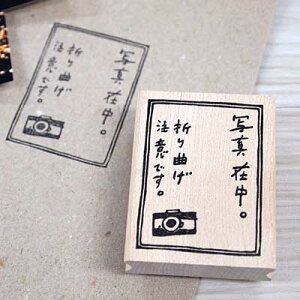 写真在中。
折り曲げ
注意です。
写真在中。
折り曲げ
注意です。